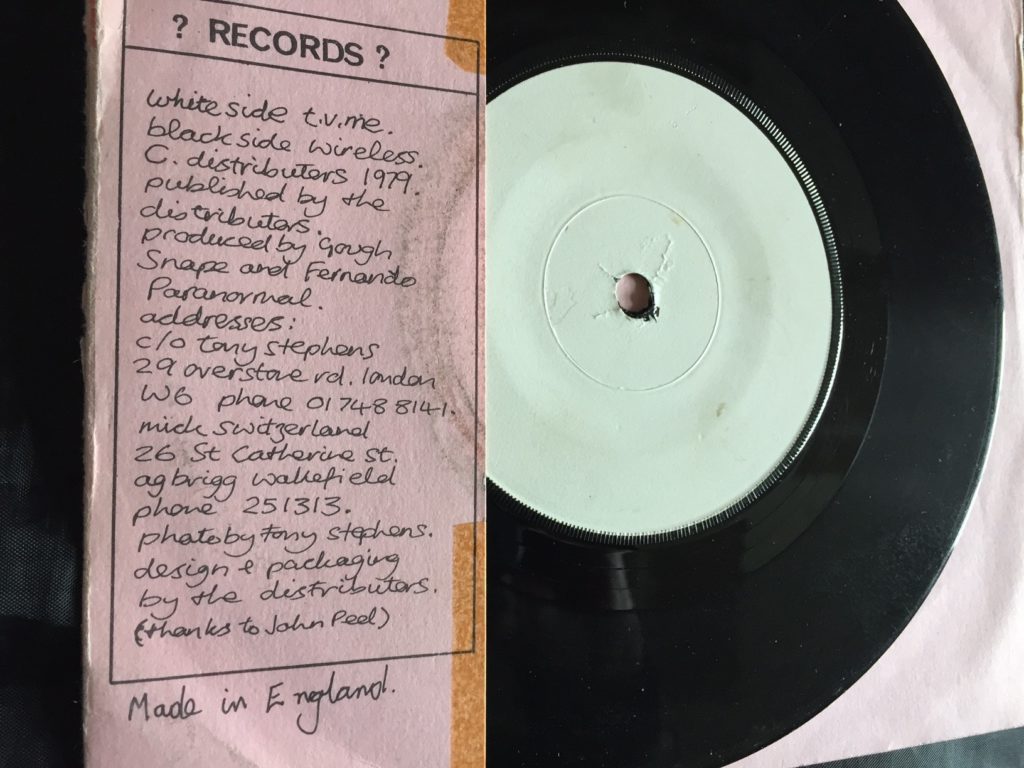 ? RECORDS ?
white side t.v.me.
black side wireless.
C. distributors 1979.
published by the
distributors.
produced by Gough
Snape and Fernando
Paranormal.
addresses:
c/o tony stephens
29 overstone rd. london
W6 phone 01 748 8141.
mick switzerland
26 St Catherine st.
agbrigg wakefield
phone 251313.
photo by tony stephens.
design & packaging
by the distributors.
(thanks to John Peel)
Made in England.